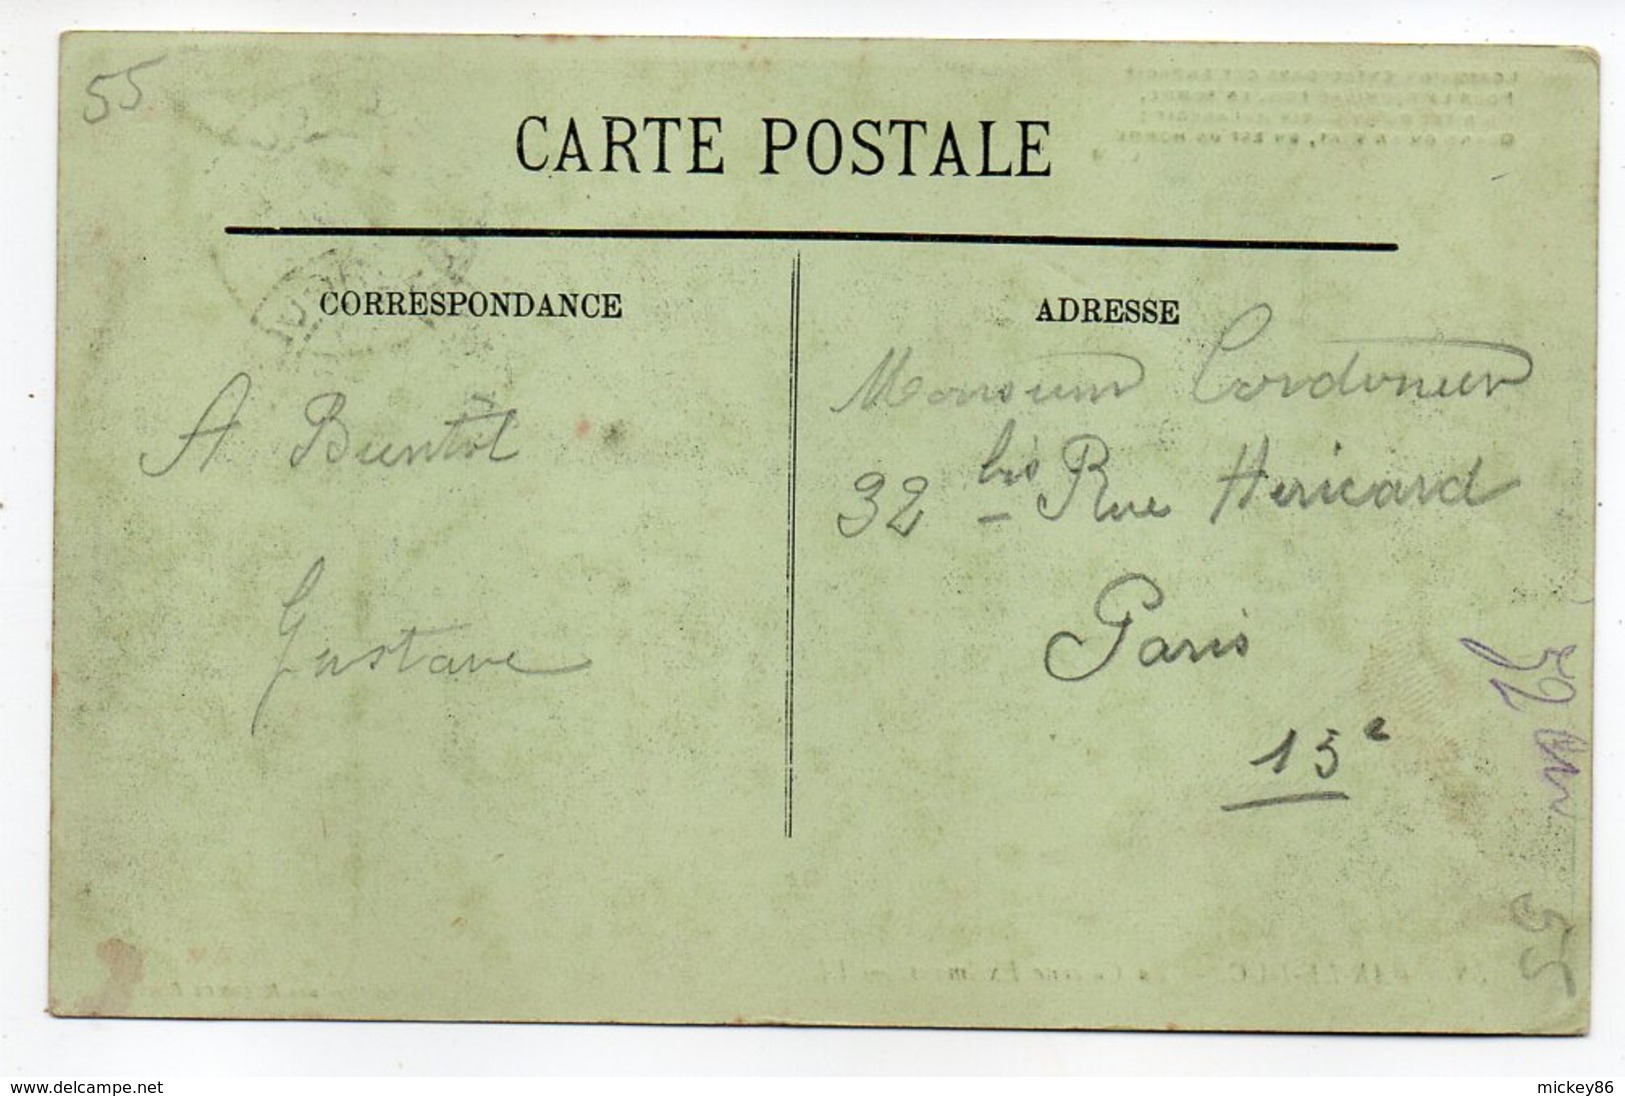 55
CARTE POSTALE
CORRESPONDANCE
A Bientôt
Gustave
ADRESSE
Monsieur Cordonier
32 bis Rue Hericard
Paris
15e
55
www.delcampe.net
mickey86